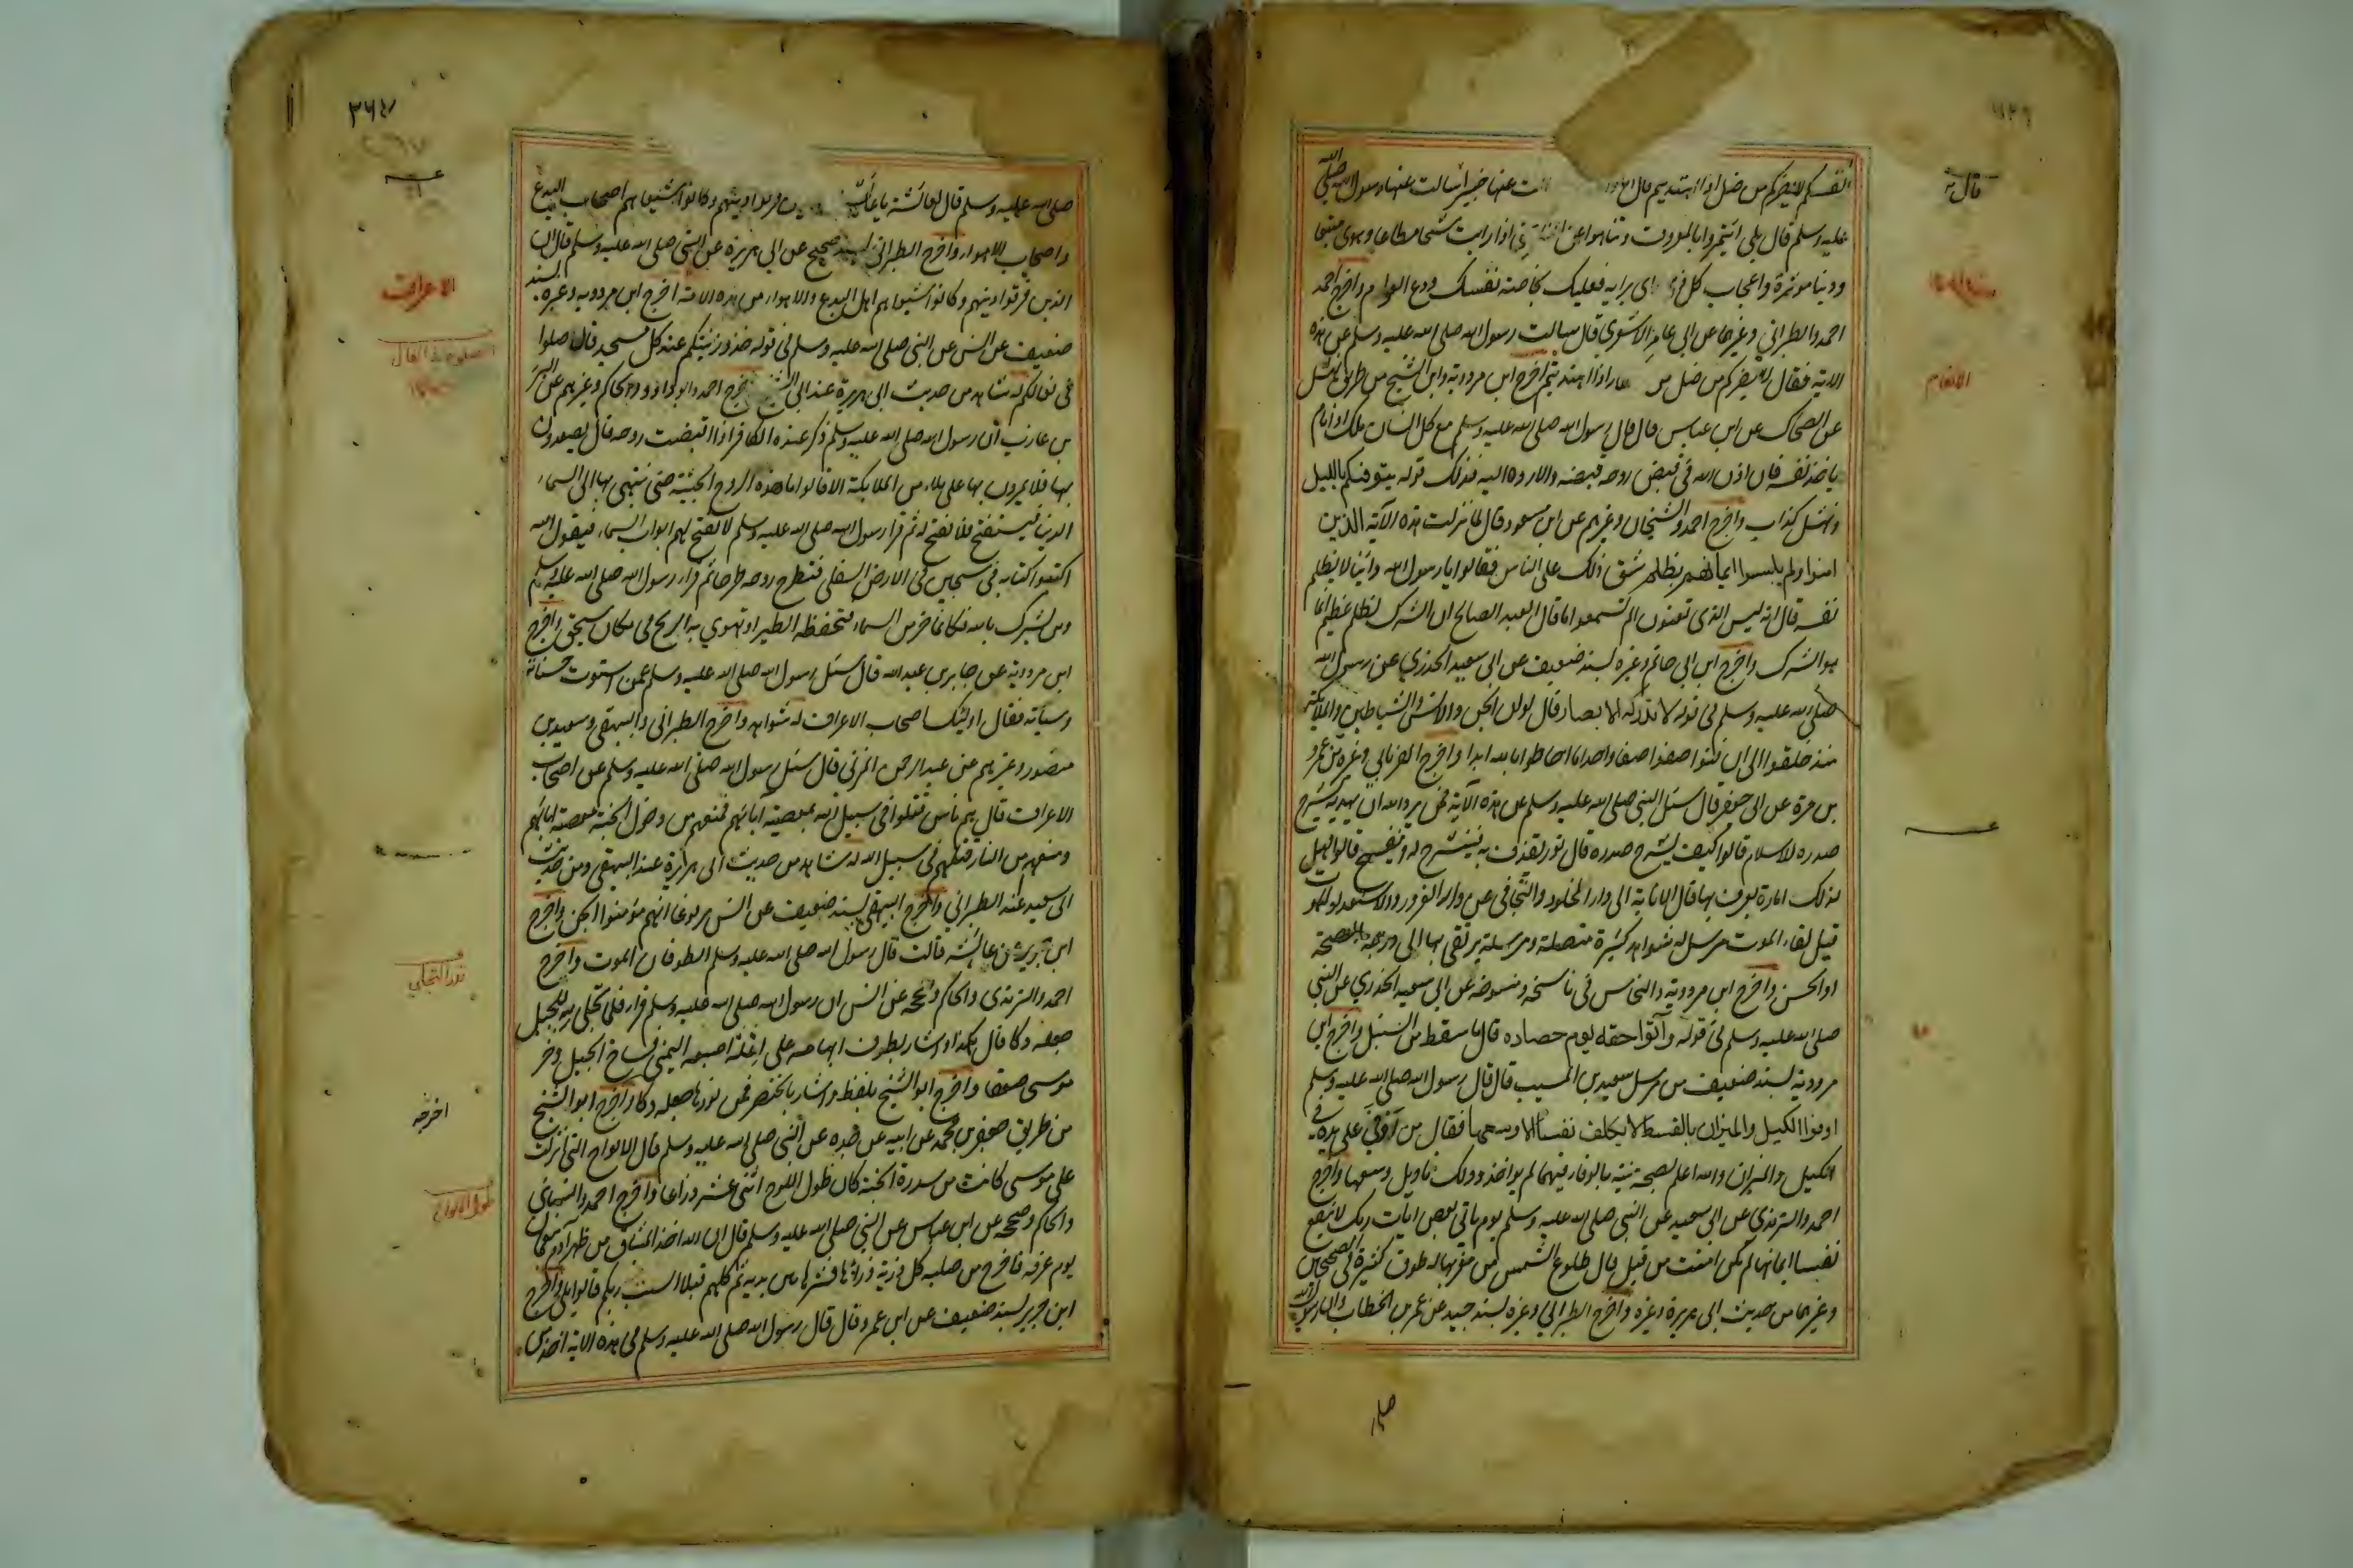 انفسكم لا يضركم من ضل اذا اهتديتم قال اما والله عنها خبيرا سالت عنها رسول الله صلى الله
عليه وسلم قال بل ائتمروا بالمعروف وتناهوا عن المنكر حتى اذا رايت شحا مطاعا وهوى متبعا
ودنيا موثرة واعجاب كل ذي راى برايه فعليك بخاصة نفسك ودع العوام واخرج احمد
احمد والطبراني وغيرهما عن ابي عامر الاشعري قال سالت رسول الله صلى الله عليه وسلم عن هذه
الاية فقال لا يضركم من ضل من اذا اهتديتم اخرج ابن مردوية وابو الشيخ من طريق نهشل
عن الضحاك عن ابن عباس قال قال رسول الله صلى الله عليه وسلم مع كل انسان ملك اذا نام
ياخذ نفسه فان اذن الله في قبض روحه قبضه والا رده اليه فذلك قوله يتوفيكم بالليل
ونهشل كذاب واخرج احمد والشيخان وغيرهم عن ابن مسعود قال لما نزلت هذه الآية الذين
امنوا ولم يلبسوا ايمانهم بظلم شق ذلك على الناس فقالوا يا رسول الله واينا لا يظلم
نفسه قال انه ليس الذي تعنون الم تسمعوا ما قال العبد الصالح ان الشرك لظلم عظيم انما
هو الشرك واخرج ابن ابي حاتم وغيره بسند ضعيف عن ابي سعيد الخدري عن رسول الله
صلى الله عليه وسلم في قوله لا تدركه الابصار قال لو ان الجن والانس والشياطين والملائكة
منذ خلقوا الى ان فنوا صفوا صفا واحدا ما احاطوا بالله ابدا واخرج الفريابي وغيره عن عمرو
بن مرة عن ابي جعفر قال سئل النبي صلى الله عليه وسلم عن هذه الآية فمن يرد الله ان يهديه يشرح
صدره للاسلام قالوا كيف يشرح صدره قال نور يقذف به فينشرح له وينفسح قالوا فهل
لذلك امارة يعرف بها قال الانابة الى دار الخلود والتجافى عن دار الغرور والاستعداد للموت
قبل لقاء الموت مرسل له شواهد كثيرة متصلة ومرسلة يرتقي بها الى درجة الصحة
او الحسن واخرج ابن مردوية والنحاس في ناسخه ومنسوخه عن ابي سعيد الخدري عن النبي
صلى الله عليه وسلم في قوله وآتوا حقه يوم حصاده قال ما سقط من السنبل واخرج ابن
مردوية بسند ضعيف من مرسل سعيد بن المسيب قال قال رسول الله صلى الله عليه وسلم
اوفوا الكيل والميزان بالقسط لا يكلف نفسا الا وسعها فقال من اوفى على يده في
الكيل والميزان والله اعلم بصحة نيته بالوفاء فيهما لم يواخذ وذلك تاويل وسعها واخرج
احمد والترمذي عن ابي سعيد عن النبي صلى الله عليه وسلم يوم ياتي بعض ايات ربك لا ينفع
نفسا ايمانها لم تكن امنت من قبل قال طلوع الشمس من مغربها له طرق كثيرة في الصحيحين
وغيرهما من حديث ابي هريرة وغيره واخرج الطبراني وغيره بسند جيد عن عمر بن الخطاب ان رسول الله
صلى
قال
الانعام
صلى الله عليه وسلم قال لعائشة يا عائش فرقوا دينهم وكانوا شيعا هم اصحاب البدع
واصحاب الاهواء واخرج الطبراني بسند صحيح عن ابي هريرة عن النبي صلى الله عليه وسلم قال ان
الذين فرقوا دينهم وكانوا شيعا هم اهل البدع والاهواء من هذه الامة اخرج ابن مردويه وغيره بسند
ضعيف عن انس عن النبي صلى الله عليه وسلم في قوله خذوا زينتكم عند كل مسجد قال صلوا
في نعالكم له شاهد من حديث ابي هريرة عند ابي الشيخ اخرج احمد وابو داود والحاكم وغيرهم عن البراء
بن عازب ان رسول الله صلى الله عليه وسلم ذكر عنده الكافر اذا قبضت روحه قال يصعدون
بها فلا يمرون بها على ملاء من الملايكة الا قالوا ما هذه الروح الخبيثة حتى ينتهي بها الى السماء
الدنيا فيستفتح فلا تفتح له ثم قرا رسول الله صلى الله عليه وسلم لا تفتح لهم ابواب السماء فيقول الله
اكتبوا كتابه في سجين في الارض السفلى فتطرح روحه طرحا ثم قرا رسول الله صلى الله عليه وسلم
ومن يشرك بالله فكانما خر من السماء فتخطفه الطير او تهوي به الريح في مكان سحيق واخرج
ابن مردوية عن جابر بن عبد الله قال سئل رسول الله صلى الله عليه وسلم عمن استوت حسناته
وسيأته فقال اوليك اصحاب الاعراف له شواهد واخرج الطبراني والبيهقي وسعيد بن
منصور وغيرهم عن عبد الرحمن المزني قال سئل رسول الله صلى الله عليه وسلم عن اصحاب
الاعراف قال هم ناس قتلوا في سبيل الله بمعصية آبائهم فمنعهم من دخول الجنة معصية ابائهم
ومنعهم من النار قتلهم في سبيل الله له شاهد من حديث ابي هريرة عند البيهقي ومن حديث
ابي سعيد عند الطبراني واخرج البيهقي بسند ضعيف عن انس مرفوعا انهم مؤمنوا الجن واخرج
ابن جرير عن عائشة قالت قال رسول الله صلى الله عليه وسلم الطوفان الموت واخرج
احمد والترمذي والحاكم وصححه عن انس ان رسول الله صلى الله عليه وسلم قرا فلما تجلى ربه للجبل
جعله دكا قال هكذا واشار بطرف ابهامه على انملة اصبعه اليمنى فساخ الجبل وخر
موسى صعقا واخرج ابو الشيخ بلفظ واشار بالخنصر فمن نورها جعله دكا واخرج ابو الشيخ
من طريق جعفر بن محمد عن ابيه عن جده عن النبي صلى الله عليه وسلم قال الالواح التي انزلت
على موسى كانت من سدرة الجنة كان طول اللوح اثنى عشر ذراعا واخرج احمد والنسائي
والحاكم وصححه عن ابن عباس عن النبي صلى الله عليه وسلم قال ان الله اخذ الميثاق من ظهر آدم بنعمان
يوم عرفة فاخرج من صلبه كل ذرية ذراها فنثرها بين يديه ثم كلمهم قبلا الست بربكم قالوا بلى واخرج
ابن جرير بسند ضعيف عن ابن عمر وقال قال رسول الله صلى الله عليه وسلم في هذه الاية اخذ من
الاعراف
نور التجلي
اخرجه
طول الالواح